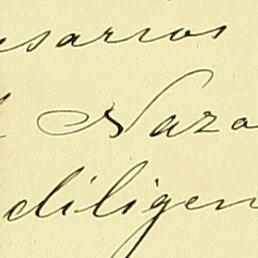 esarios
Naza
diligen